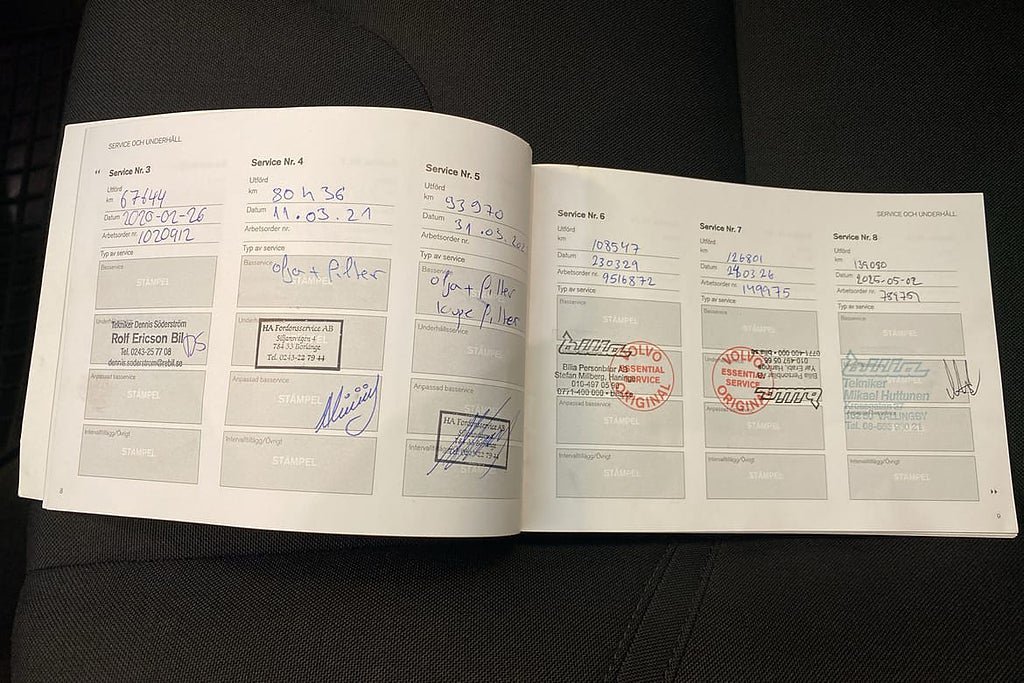 SERVICE OCH UNDERHÅLL
Service Nr. 3
Utförd
km 67644
Datum 2020-02-26
Arbetsorder nr. 1020912
Typ av service
Basservice
STÄMPEL
Tekniker Dennis Söderström
Rolf Ericson Bil
Tel. 0243-25 77 08
dennis.soderstrom@rebil.se
DS
Anpassad basservice
STÄMPEL
Intervalltillägg/Övrigt
STÄMPEL
8
Service Nr. 4
Utförd
km 80436
Datum 11.03.21
Arbetsorder nr.
Typ av service
Basservice
olja + filter
HA Fordonsservice AB
Siljansvägen 4
784 33 Borlänge
Tel. 0243-22 79 44
Anpassad basservice
STÄMPEL
Intervalltillägg/Övrigt
STÄMPEL
Service Nr. 5
Utförd
km 93970
Datum 31.03.
Arbetsorder nr.
Typ av service
Basservice
olja + filter
kupe filter
Underhållsservice
STÄMPEL
Anpassad basservice
STÄMPEL
HA Fordonsservice AB
Tel. 0243-22 79 44
Intervalltillägg/Övrigt
STÄMPEL
Service Nr. 6
Utförd
km 108547
Datum 230329
Arbetsorder nr. 9516872
Typ av service
Basservice
STÄMPEL
Bilia
VOLVO
ESSENTIAL
SERVICE
ORIGINAL
Bilia Personbilar AB
Stefan Millberg, Haninge
010-497 05
0771-400 000
Anpassad basservice
STÄMPEL
Intervalltillägg/Övrigt
STÄMPEL
SERVICE OCH UNDERHÅLL
Service Nr. 7
Utförd
km 126801
Datum 240326
Arbetsorder nr. 149975
Typ av service
Basservice
STÄMPEL
VOLVO
ESSENTIAL
SERVICE
ORIGINAL
Bilia Personbilar
0771-400 000
Bilia
STÄMPEL
Intervalltillägg/Övrigt
STÄMPEL
Service Nr. 8
Utförd
km 139080
Datum 2025-05-02
Arbetsorder nr. 789757
Typ av service
Basservice
STÄMPEL
Bilia
Tekniker
Mikael Huttunen
VÄLLINGBY
STÄMPEL
Intervalltillägg/Övrigt
STÄMPEL
9